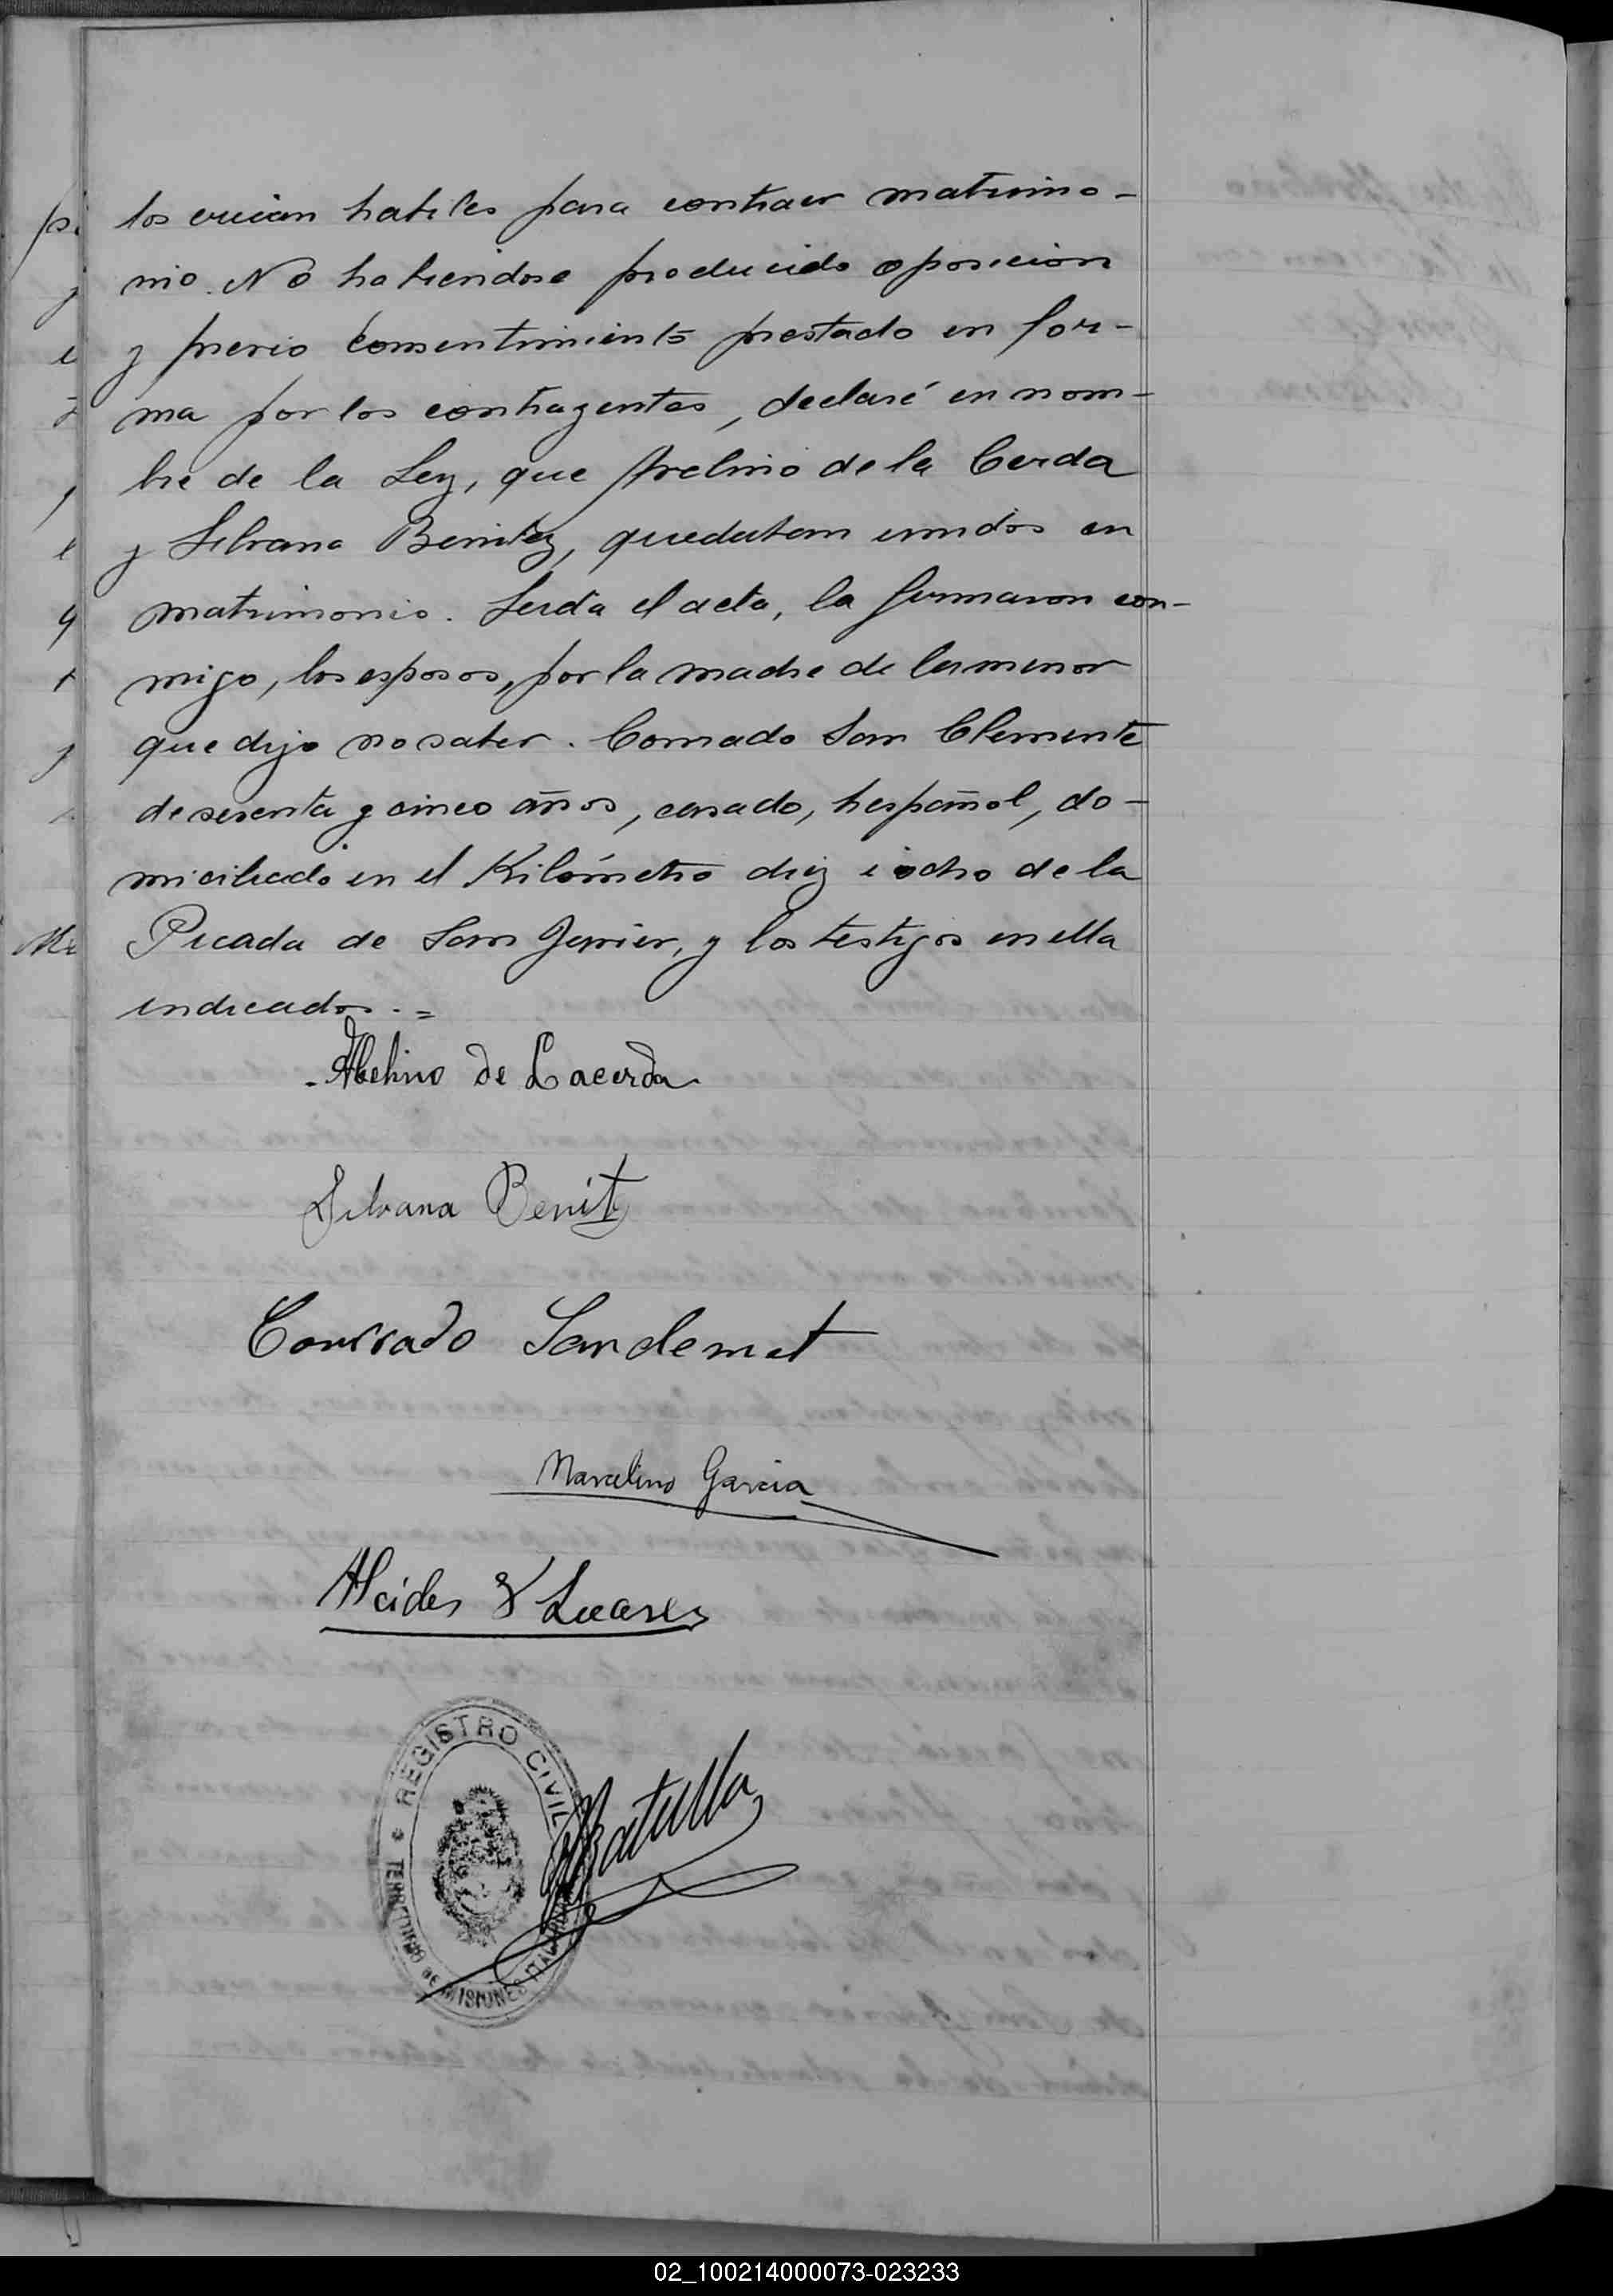 los creian habiles para contraer matrimo-
nio. No habiendose producido oposicion
y previo consentimiento prestado en for-
ma por los contrayentes, declaré en nom-
bre de la Ley, que Avelino de la Cerda
y Silvana Benitez, quedaban unidos en
matrimonio. Leida el acta, la firmaron con-
migo, los esposos, por la madre de la menor
que dijo no saber. Conrado San Clemente
de sesenta y cinco años, casado, hespañol, do-
miciliado en el Kilómetro diez i ocho de la
Picada de San Javier, y los testigos en ella
indicados.=
Abelino de Lacerda
Silvana Benitz
Conrrado Sanclemet
Marcelino Garcia
Alcides
REGISTRO CIVIL
TERRITORIO DE MISIONES
02_100214000073-023233